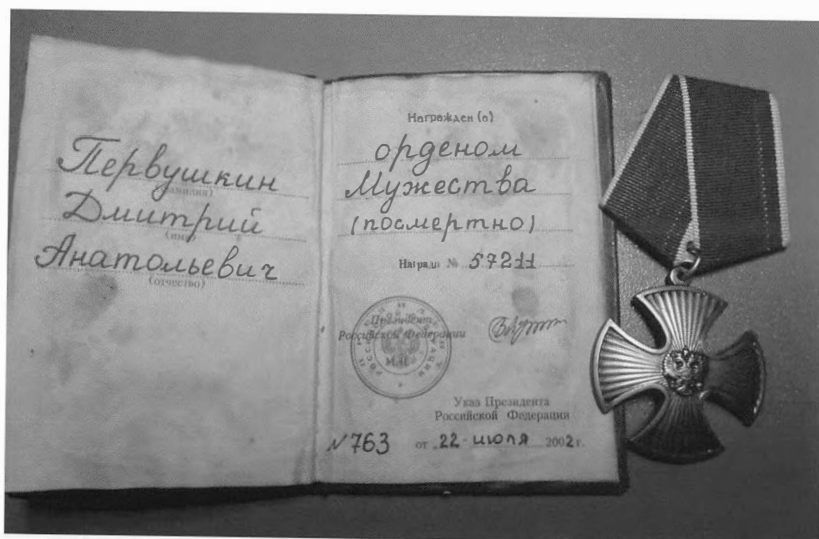 Первушкин
(фамилия)
Дмитрий
(имя)
Анатольевич
(отчество)
Награжден (а)
орденом
Мужества
(посмертно)
Награда № 57211
Президент
Российской Федерации
М.П.
Указ Президента
Российской Федерации
N763 от 22 июля 2002 г.